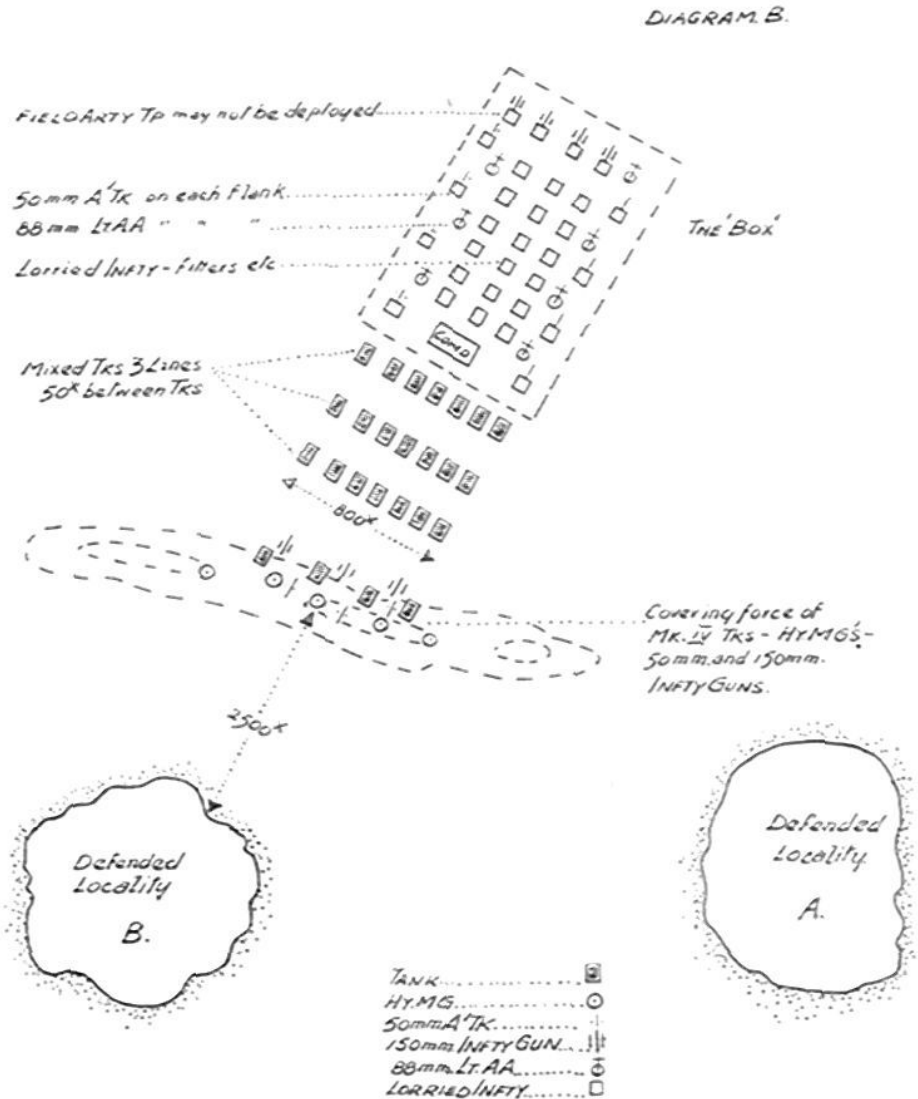 DIAGRAM. B.
FIELD ARTY TP may not be deployed
50mm A'TK on each Flank
88mm LT.AA " " "
Lorried INFTY - Fitters etc
THE 'BOX'
COMD
Mixed TKS 3 Lines
50x between TKS
800x
Covering force of
MK. IV TKS - HY.MG'S -
50mm. and 150mm.
INFTY GUNS.
2500x
Defended
Locality
B.
Defended
Locality
A.
TANK
HY.MG
50mm A'TK
150mm. INFTY GUN
88mm LT. AA
LORRIED INFTY